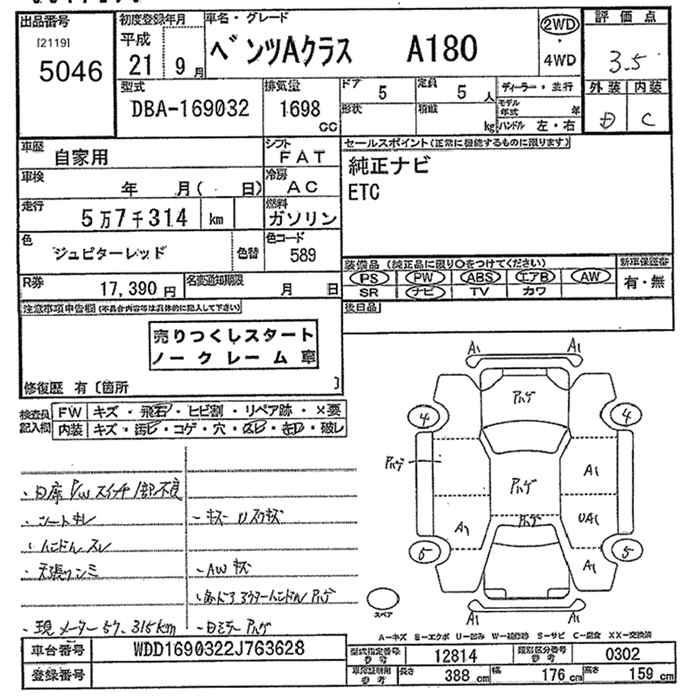 出品番号
[2119]
5046
初度登録年月
平成
21 9月
車名・グレード
ベンツAクラス A180
2WD
・
4WD
評価点
3.5
外装 内装
D C
型式
DBA-169032
排気量
1698
CC
ドア
5
定員
5 人
形状
積載
kg
ディーラー・並行
モデル年式 年
ハンドル 左・右
車歴
自家用
シフト
FAT
車検
年 月( 日)
冷房
AC
走行
5万7千314 km
燃料
ガソリン
色
ジュピターレッド
色替
色コード
589
R券
17,390円
名変通知期限
月 日
セールスポイント(正常に機能するものに限ります)
純正ナビ
ETC
装備品(純正品に限り○をつけてください)
PS PW ABS エアB AW
SR ナビ TV カワ
新車保証書
有・無
後日品
注意事項申告欄(不具合内容等は具体的に記入して下さい)
売りつくしスタート
ノークレーム車
修復歴 有〔箇所 〕
検査員記入欄
FW キズ・飛石・ヒビ割・リペア跡・×要
内装 キズ・汚レ・コゲ・穴・スレ・キレ・破レ
・シートキレ
・ハンドルスレ
・天張りシミ
・現メーター57,315km
・キズ Uスリキズ
・AWキズ
A1 A1
4 4
Pハゲ
Pハゲ
Pハゲ
Pハゲ
A1
A1
UA1
A1
5 5
A1 A1
スペア
A－キズ E－エクボ U－凹み W－補修跡 S－サビ C－腐食 XX－交換済
車台番号
WDD1690322J763628
登録番号
型式指定番号
参考
12814
類別区分番号
参考
0302
車庫証明用
参考
長さ
388 cm
幅
176 cm
高さ
159 cm